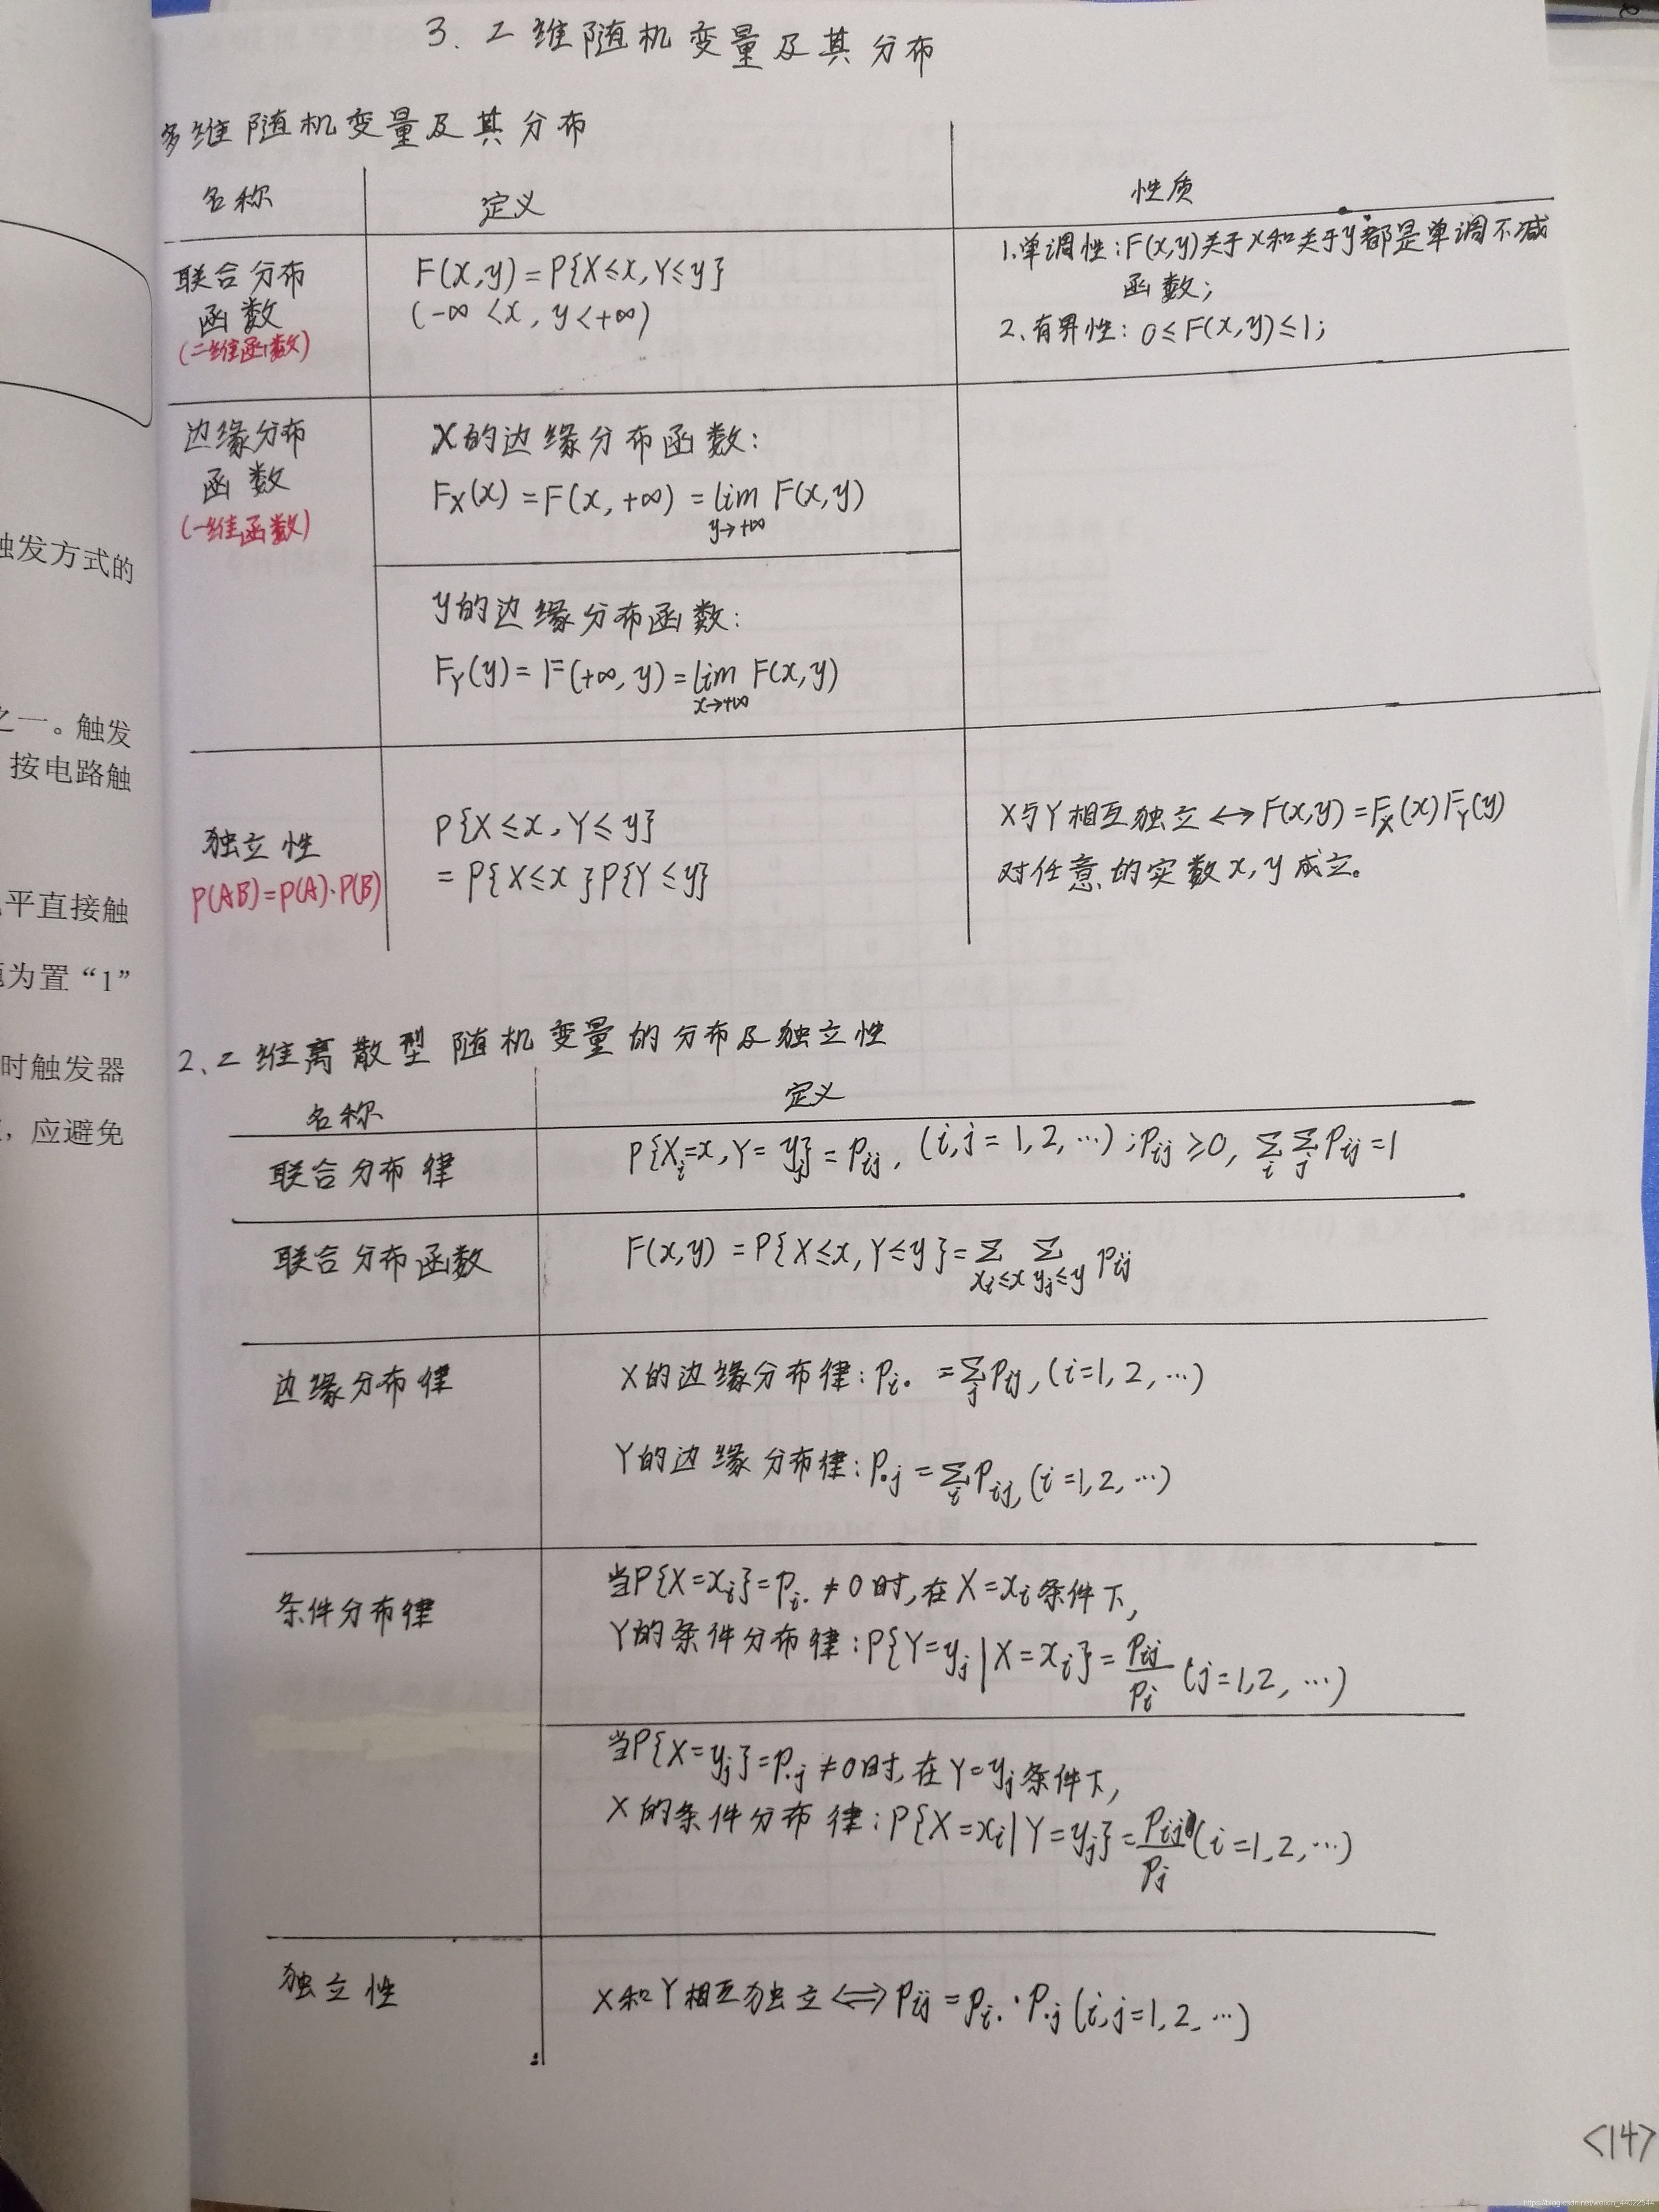 3. 二维随机变量及其分布
多维随机变量及其分布
名称 定义 性质
联合分布
函数
(二维函数)
F(x,y)=P{X≤x,Y≤y}
(-∞<x, y<+∞)
1.单调性:F(x,y)关于x和关于y都是单调不减
函数;
2.有界性: 0≤F(x,y)≤1;
边缘分布
函数
(一维函数)
X的边缘分布函数:
F_X(x)=F(x,+∞)=lim_{y→+∞} F(x,y)
y的边缘分布函数:
F_Y(y)=F(+∞,y)=lim_{x→+∞} F(x,y)
独立性
P(AB)=P(A)·P(B)
P{X≤x,Y≤y}
=P{X≤x}P{Y≤y}
X与Y相互独立↔F(x,y)=F_X(x)F_Y(y)
对任意的实数x,y成立。
2、二维离散型随机变量的分布及独立性
名称 定义
联合分布律 P{X_i=x,Y=y_j}=p_ij, (i,j=1,2,…);p_ij≥0, Σ_i Σ_j p_ij=1
联合分布函数 F(x,y)=P{X≤x,Y≤y}=Σ_{x_i≤x} Σ_{y_j≤y} p_ij
边缘分布律 X的边缘分布律:p_i. =Σ_j p_ij,(i=1,2,…)
Y的边缘分布律:p.j=Σ_i p_ij,(i=1,2,…)
条件分布律 当P{X=x_i}=p_i.≠0时,在X=x_i条件下,
Y的条件分布律:P{Y=y_j|X=x_i}=p_ij/p_i (j=1,2,…)
当P{X=y_j}=p.j≠0时,在Y=y_j条件下,
X的条件分布律:P{X=x_i|Y=y_j}=p_ij/p_j (i=1,2,…)
独立性 X和Y相互独立⟺p_ij=p_i.·p.j(i,j=1,2,…)
<14>
触发方式的
之一。触发
按电路触
平直接触
为置“1”
时触发器
，应避免
https://blog.csdn.net/weixin_44022544